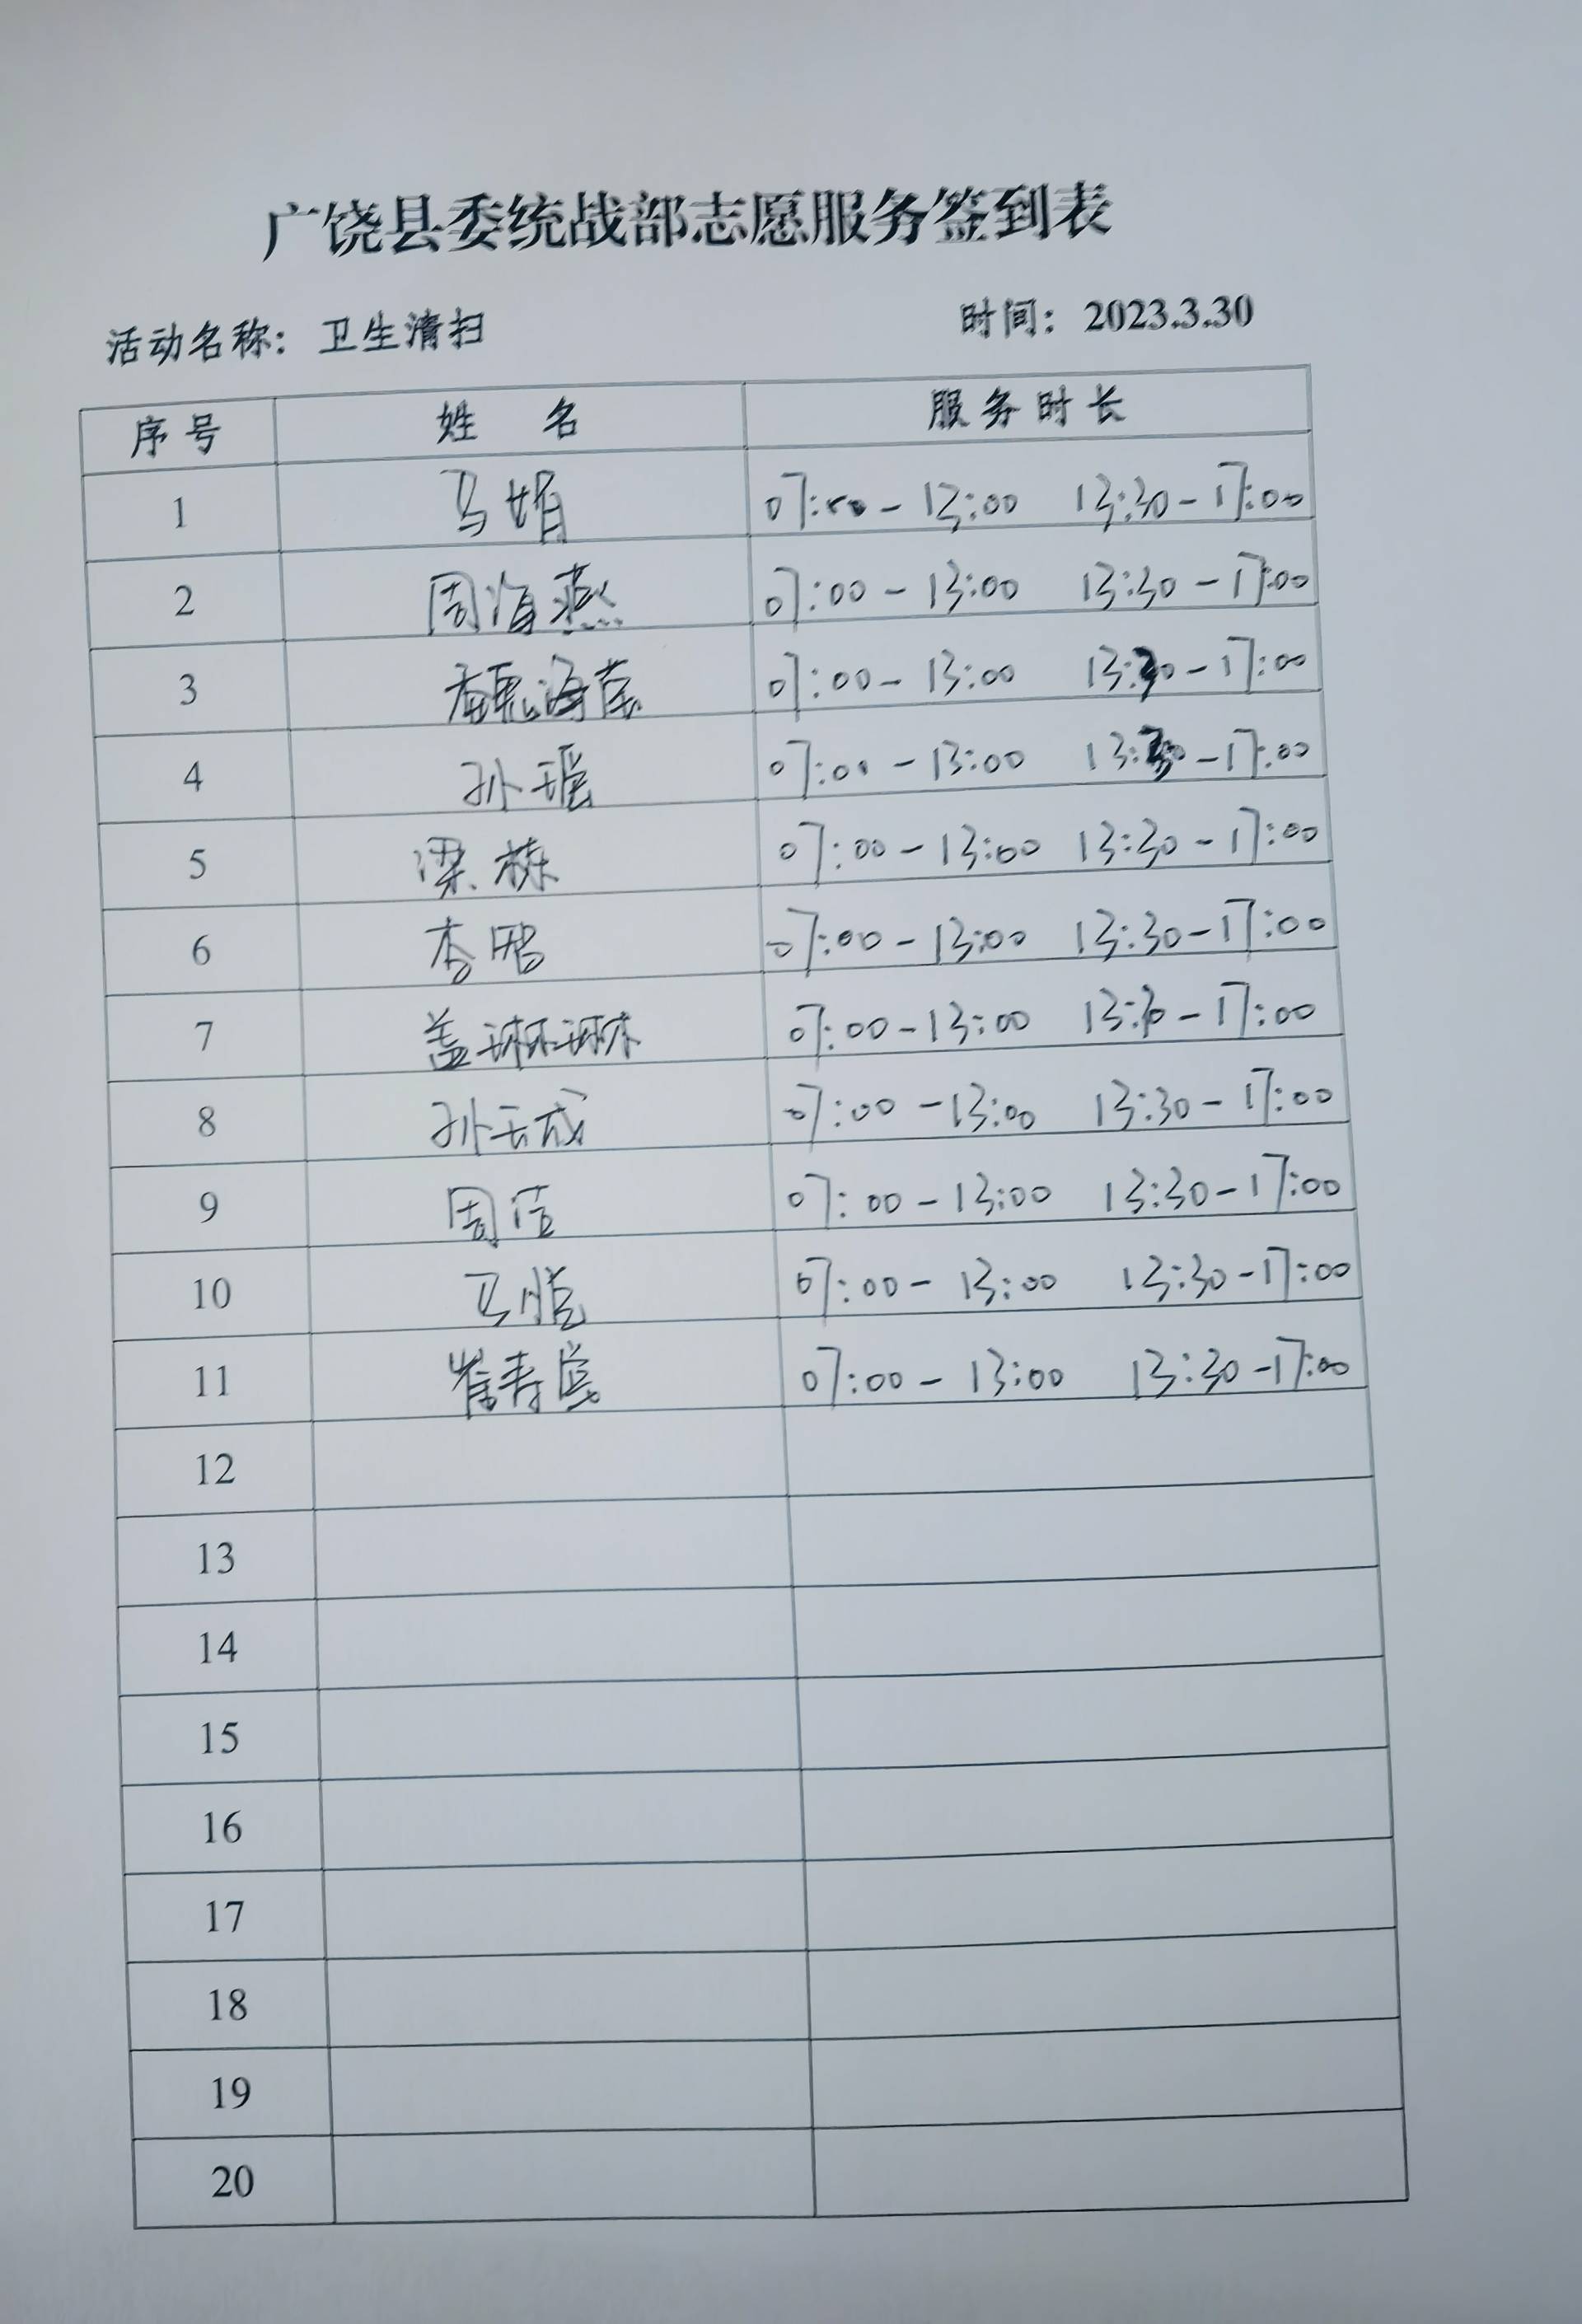 广饶县委统战部志愿服务签到表
活动名称：卫生清扫 时间：2023.3.30
序号 姓 名 服务时长
1 马娟 07:00-13:00 13:30-17:00
2 周海燕 07:00-13:00 13:30-17:00
3 07:00-13:00 13:30-17:00
4 孙瑶 07:00-13:00 13:30-17:00
5 梁栋 07:00-13:00 13:30-17:00
6 李鹏 07:00-13:00 13:30-17:00
7 盖琳琳 07:00-13:00 13:30-17:00
8 孙云成 07:00-13:00 13:30-17:00
9 周 07:00-13:00 13:30-17:00
10 马 07:00-13:00 13:30-17:00
11 崔寿 07:00-13:00 13:30-17:00
12
13
14
15
16
17
18
19
20